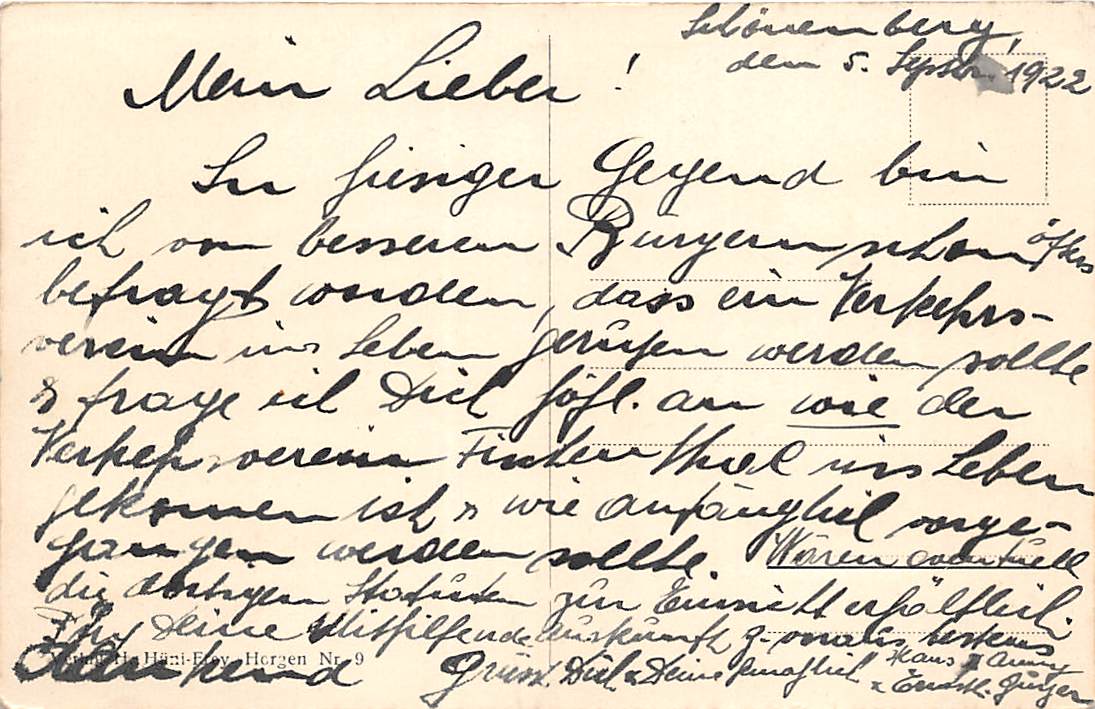 Schönenberg,
den 5. Septbr. 1922
Mein Lieber!
In hiesiger Gegend bin
ich von besseren Bürgern schon öfters
befragt worden, dass ein Verkehrs-
verein ins Leben gerufen werden sollte
& frage ich Dich höfl. an wie der
Verkehrsverein Fischen Thal ins Leben
gekommen ist & wie anfänglich vorge-
gangen werden sollte. Wären eventuell
die dortigen Statuten zur Einsicht erhältlich.
Für Deine Mithilfende Auskunft z. voraus bestens
dankend Grüsst Dich & Deine
Hans & Anny
& Ernstli
Verlag H. Hüni-Frey, Horgen Nr. 9